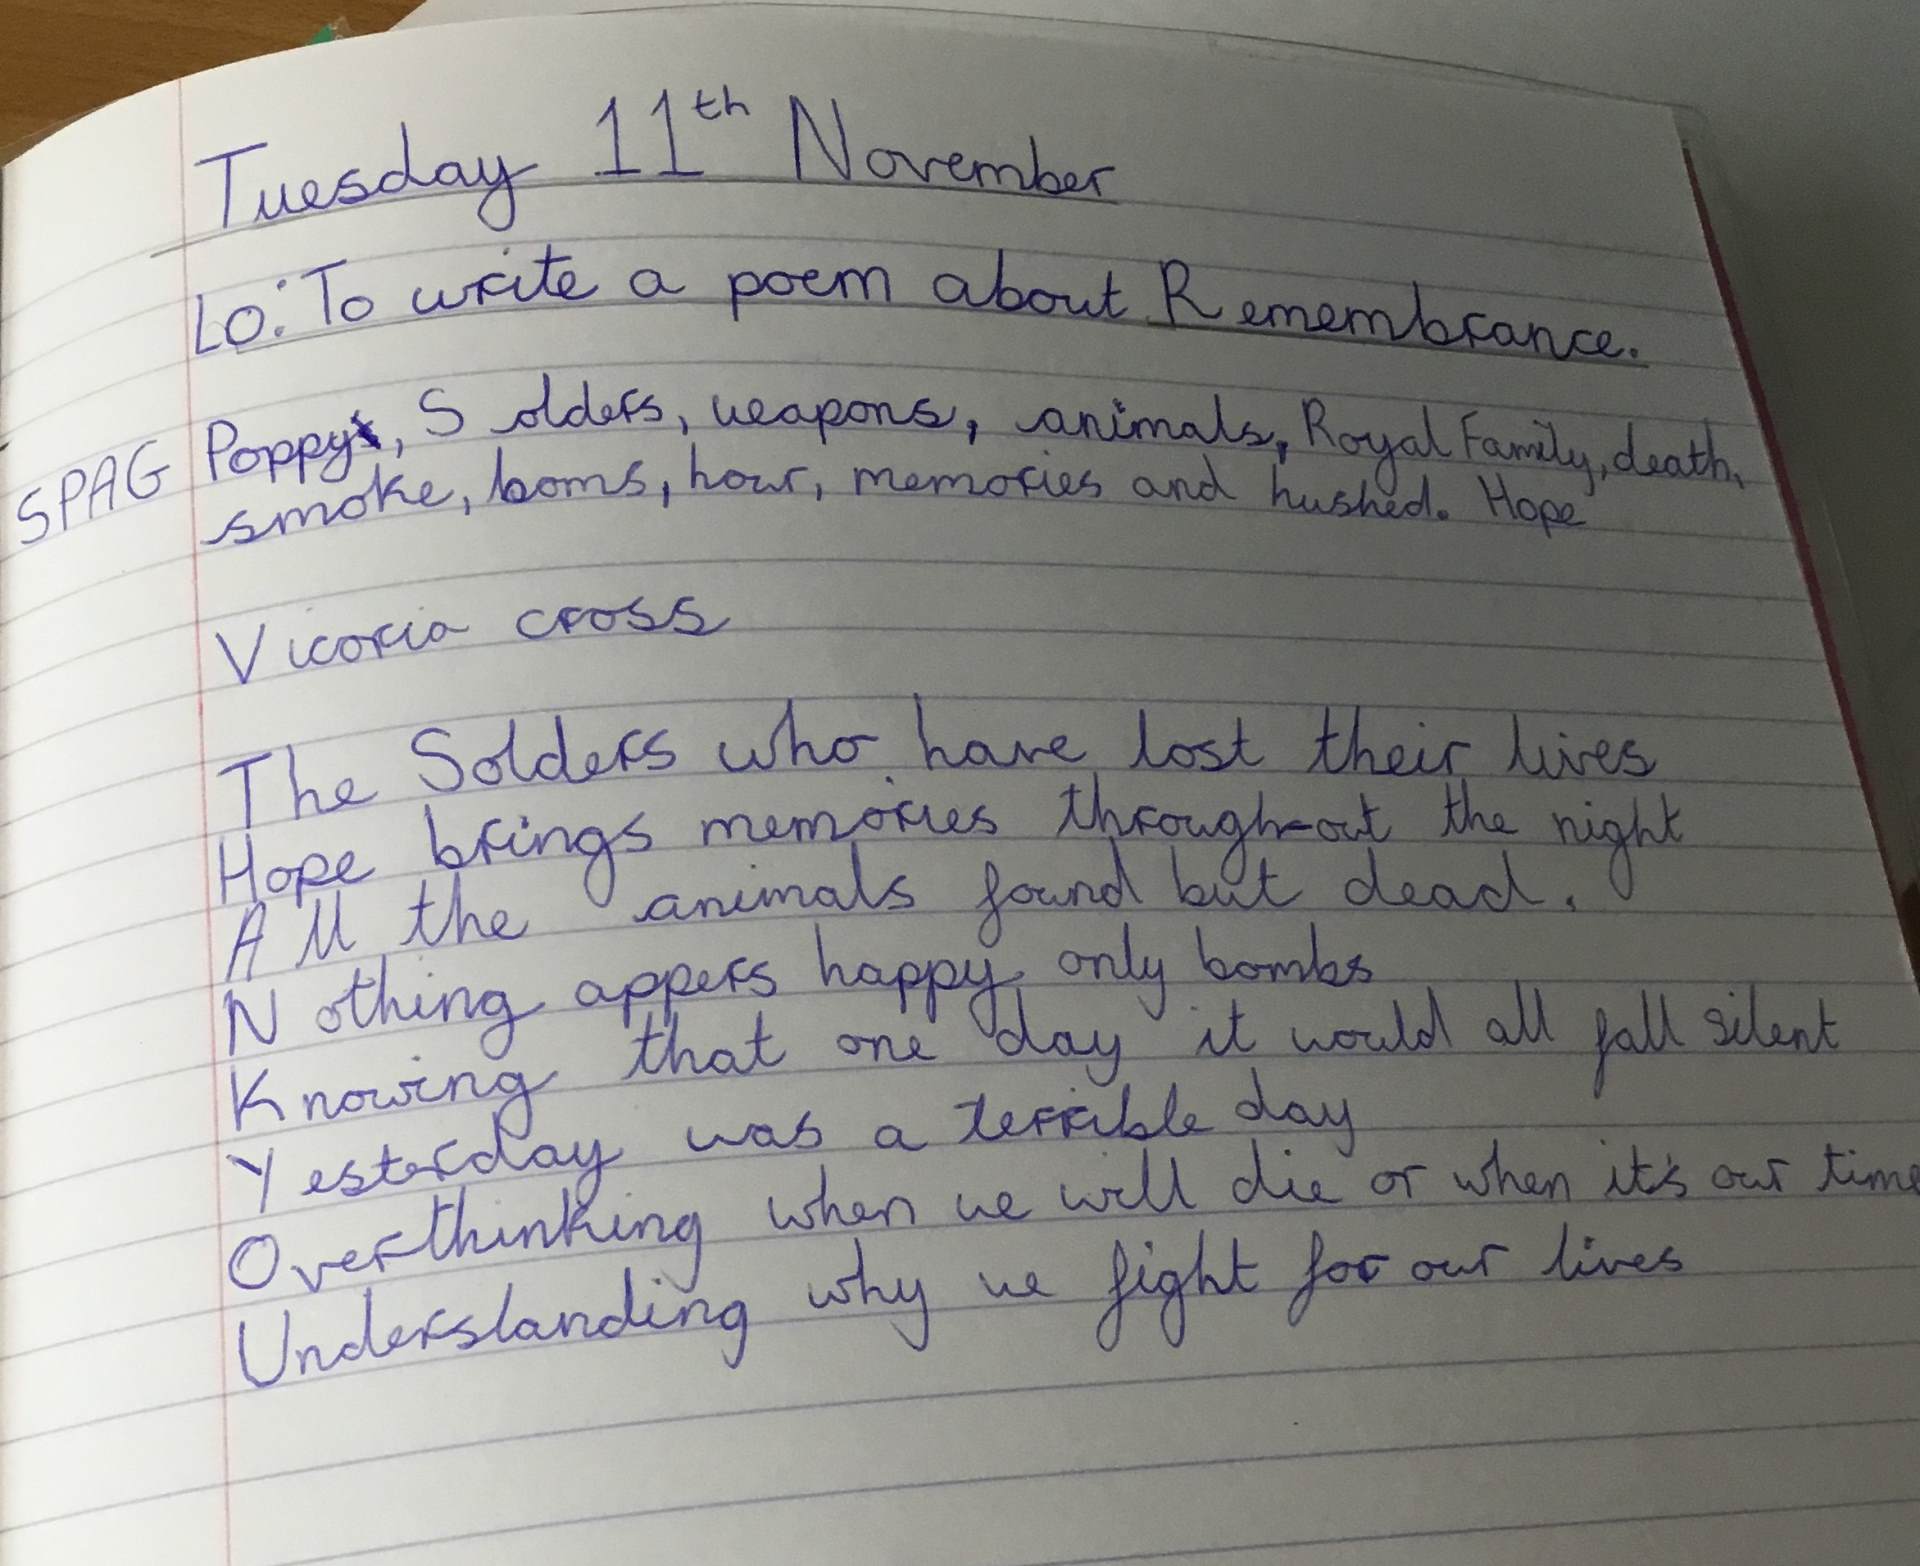 Tuesday 11th November
LO: To write a poem about Remembrance.
SPAG Poppy, Solders, weapons, animals, Royal Family, death,
smoke, boms, hour, memories and hushed. Hope
Vicoria cross
The Solders who have lost their lives
Hope brings memories through-out the night
All the animals found but dead.
Nothing appers happy only bombs
Knowing that one day it would all fall silent
Yesterday was a terrible day
Overthinking when we will die or when it's our time
Understanding why we fight for our lives